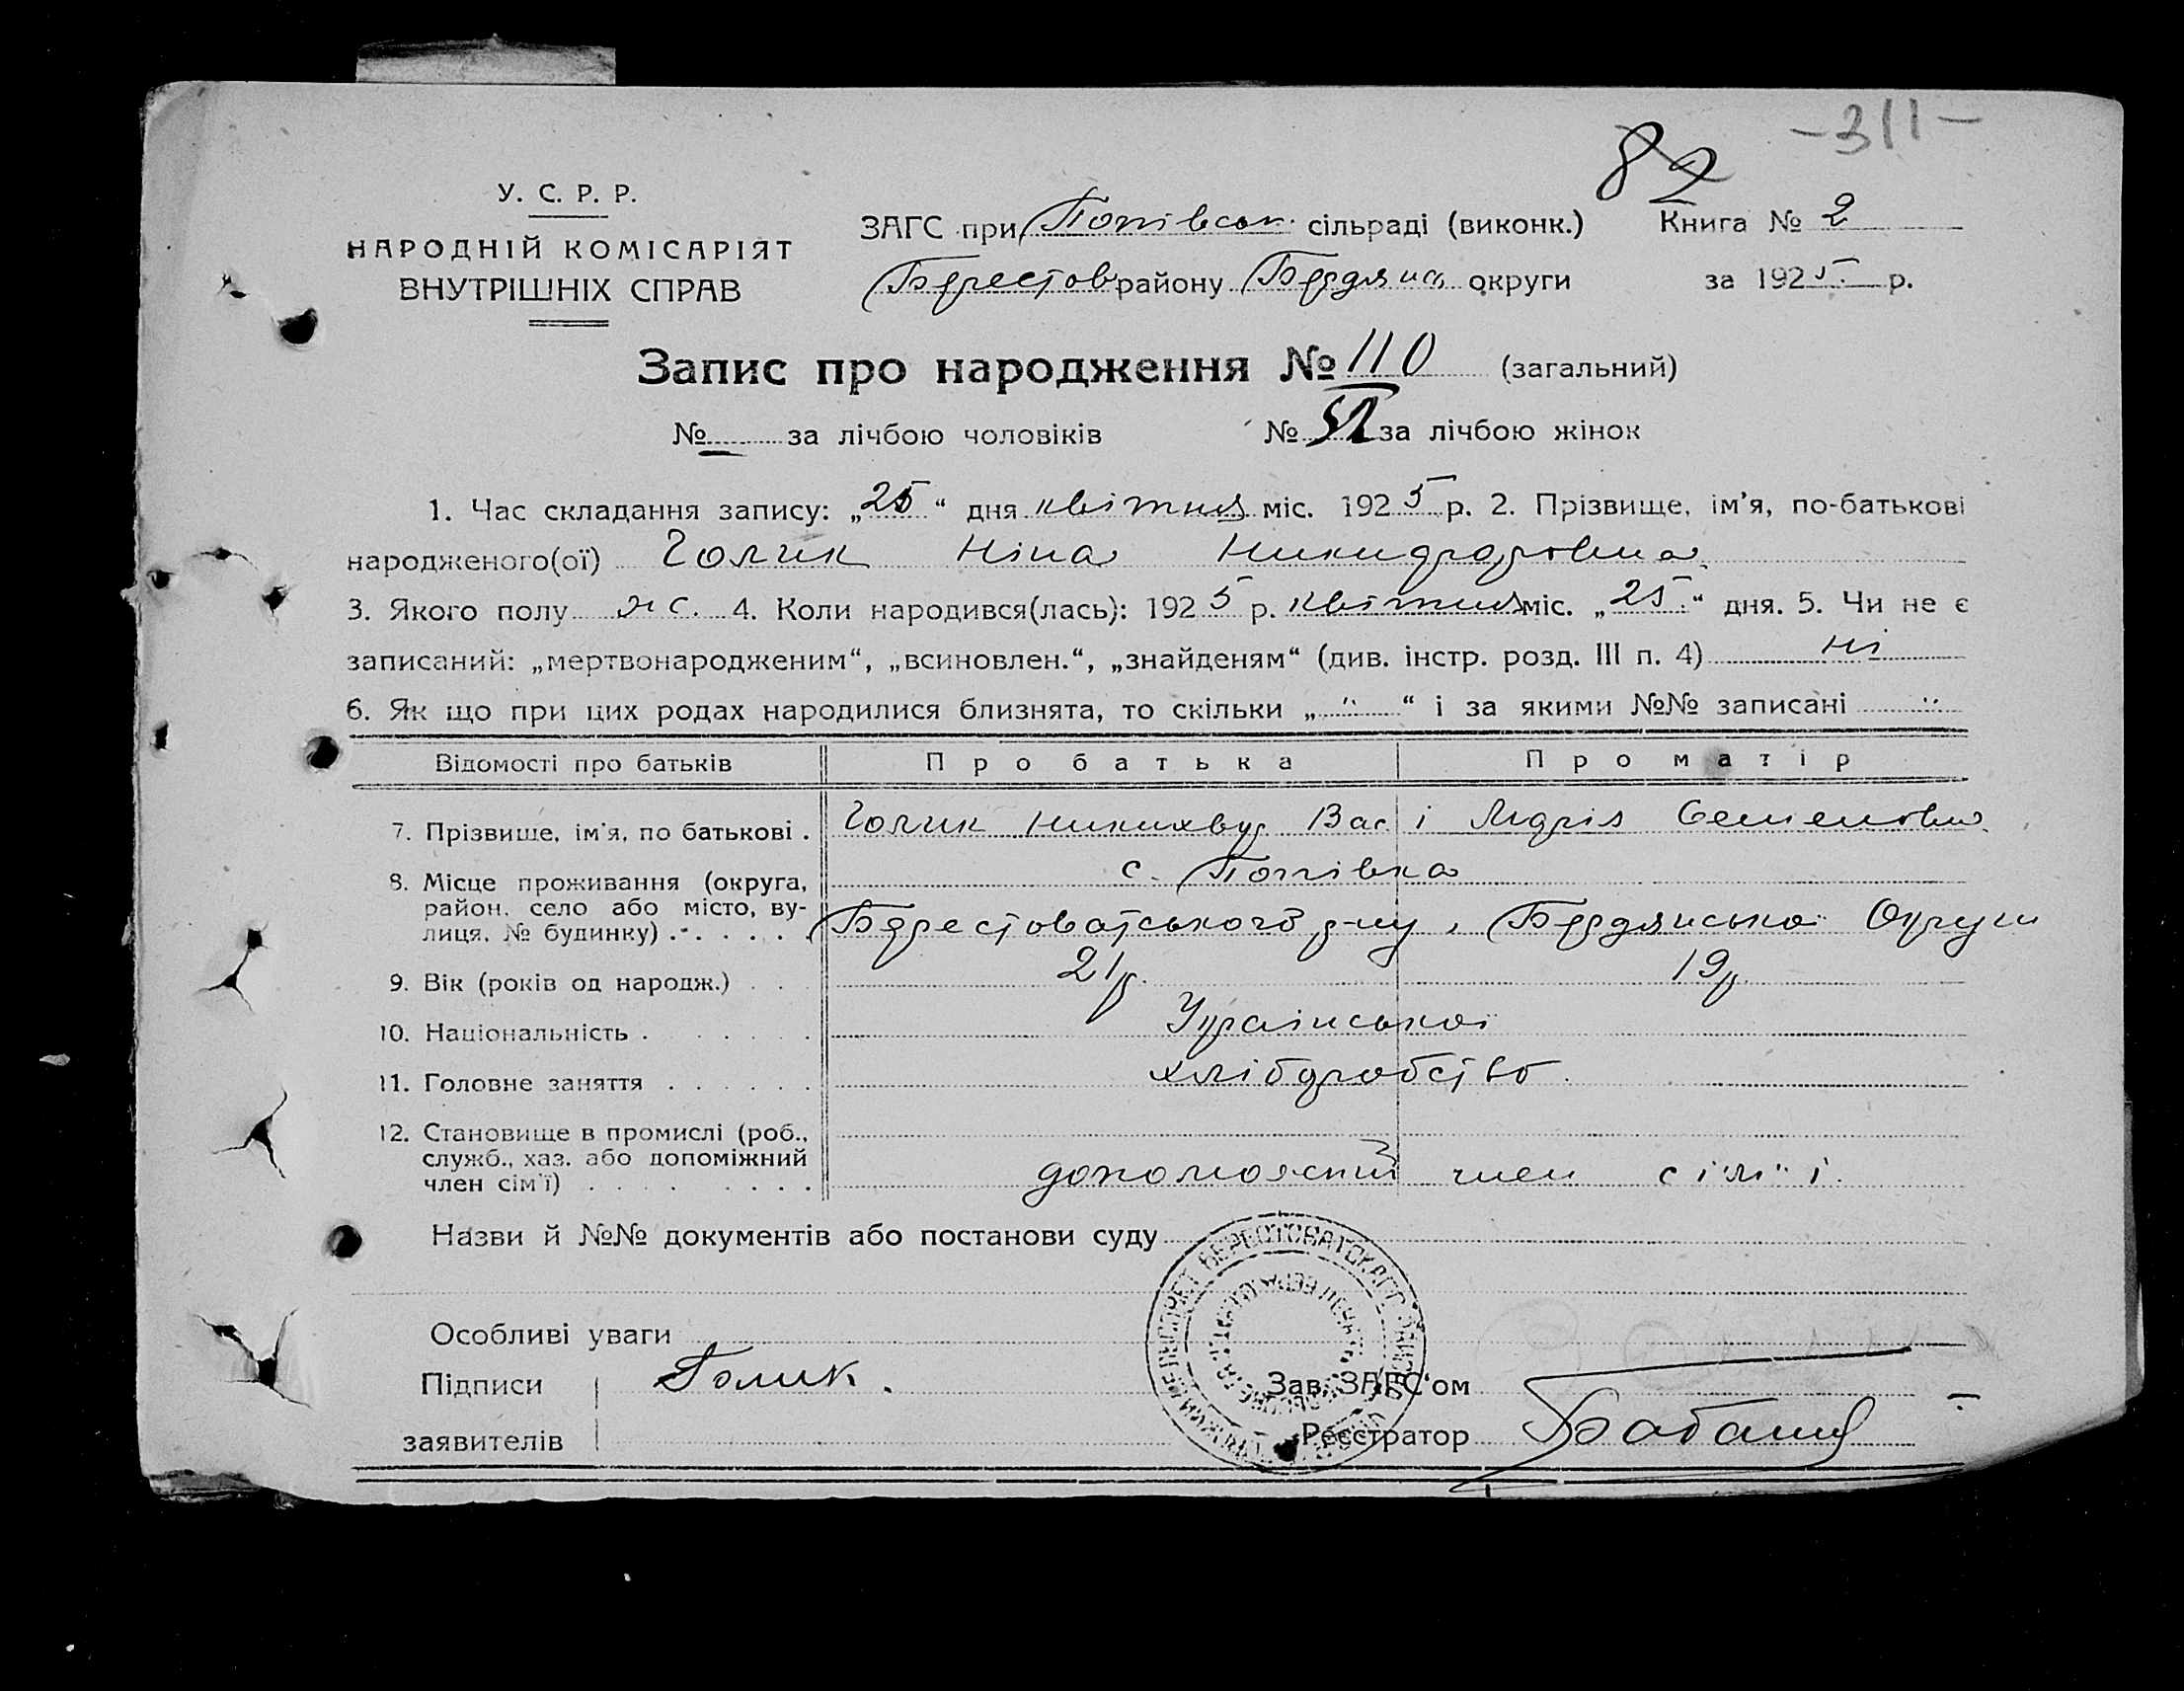 -311-
82
У. С. Р. Р.
НАРОДНІЙ КОМІСАРІЯТ
ВНУТРІШНІХ СПРАВ
ЗАГС при Попівськ. сільраді (виконк.) Книга № 2
Берестов району Бердянс. округи за 1925 р.
Запис про народження № 110 (загальний)
№ — за лічбою чоловіків № за лічбою жінок
1. Час складання запису: „25“ дня квітня міс. 1925 р. 2. Прізвище, ім'я, по-батькові
народженого(ої) Голик Ніна
3. Якого полу ж. 4. Коли народився(лась): 1925 р. квітня міс. „25“ дня. 5. Чи не є
записаний: „мертвонародженим“, „всиновлен.“, „знайденям“ (див. інстр. розд. III п. 4) ні
6. Як що при цих родах народилися близнята, то скільки „ " “ і за якими №№ записані "
Відомості про батьків Про батька Про матір
7. Прізвище, ім'я, по батькові . Голик Вас. і Марія Семеновна
8. Місце проживання (округа, с. Попівка
район, село або місто, ву-
лиця, № будинку) . . . . . . Берестоватського р-ну, Бердянської Округи
9. Вік (років од народж.) . . . 21р. 19р.
10. Національність . . . . . . Української
11. Головне заняття . . . . . . хліборобство.
12. Становище в промислі (роб.,
служб., хаз. або допоміжний
член сім'ї) . . . . . . . . член сім'ї.
Назви й №№ документів або постанови суду
Особливі уваги
Підписи Голик. Зав. ЗАГС'ом
заявителів Реєстратор